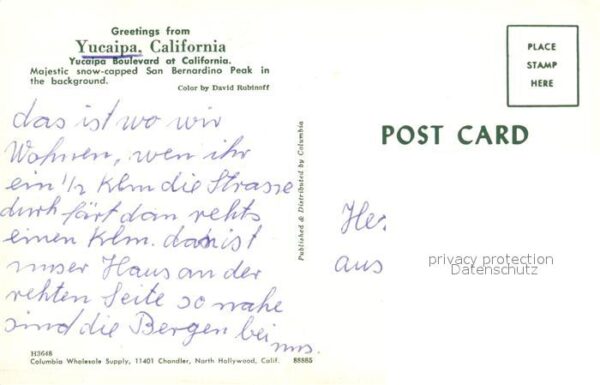 Greetings from
Yucaipa, California
Yucaipa Boulevard at California.
Majestic snow-capped San Bernardino Peak in
the background.
Color by David Rubinoff
das ist wo wir
Wohnen, wen ihr
ein 1/2 Klm die Strasse
durh färt dan rehts
einen Klm. dan ist
unser Haus an der
rehten Seite so nahe
sind die Bergen bei
uns.
H3648
Columbia Wholesale Supply, 11401 Chandler, North Hollywood, Calif. 88885
Published & Distributed by Columbia
PLACE
STAMP
HERE
POST CARD
He.
aus
privacy protection
Datenschutz